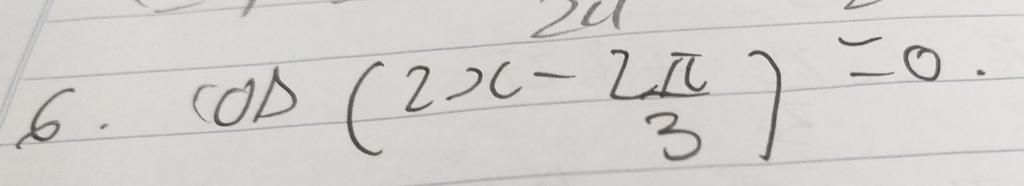 6. cos (2x - 2π/3) = 0.